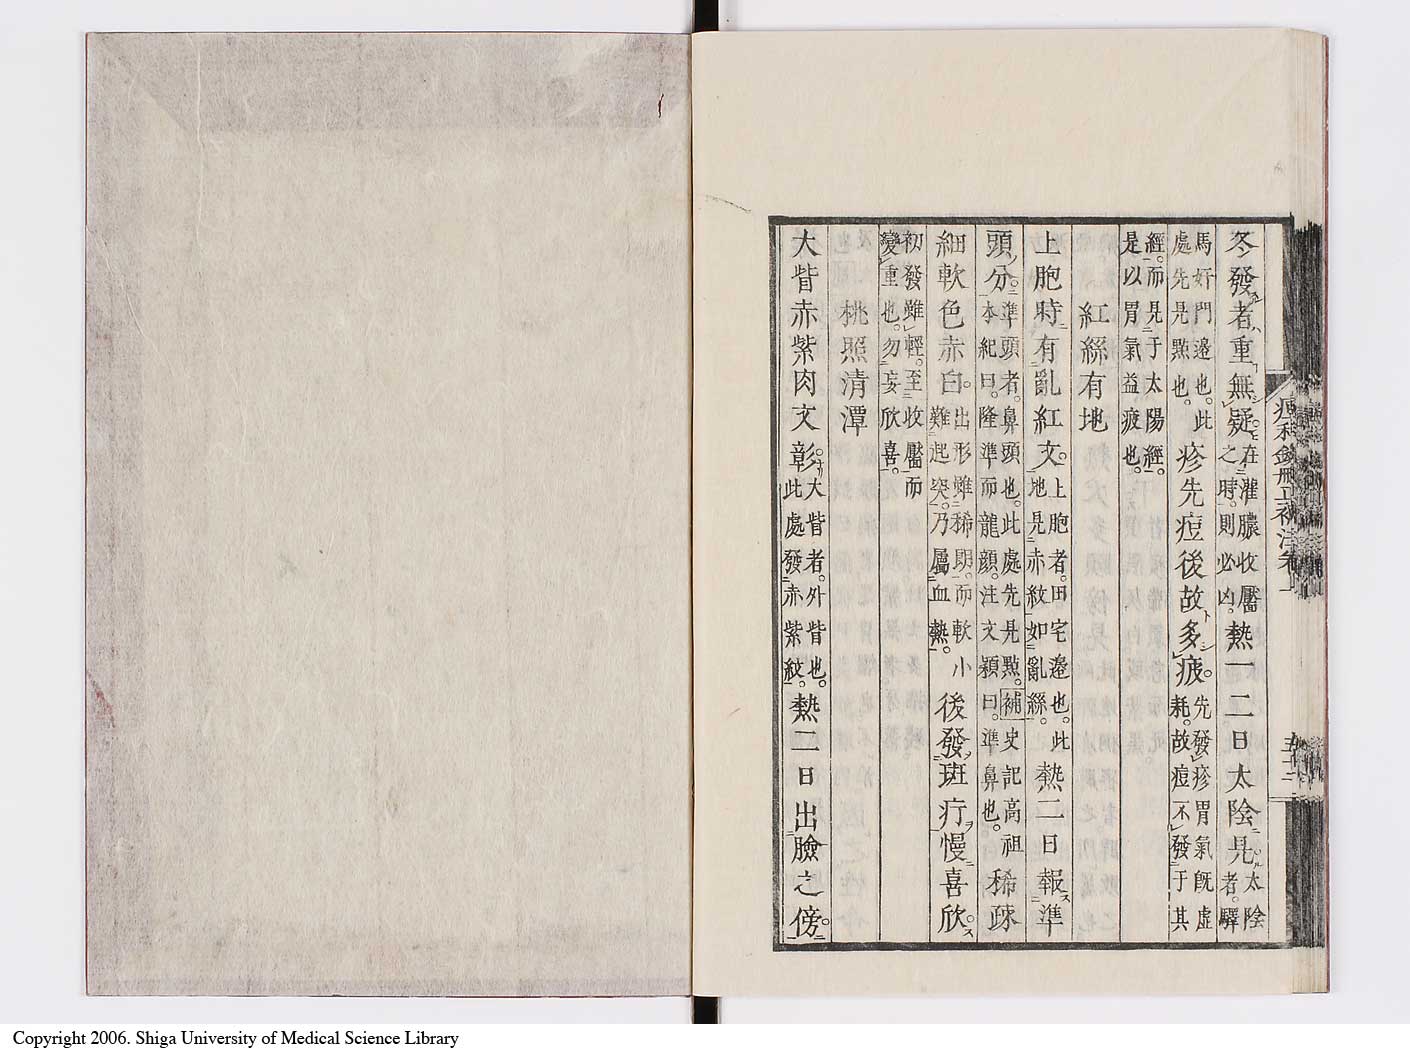 冬發者重無疑在灌膿收靨之時。則必凶。熱一二日太陰見太陰者。驛
馬奸門邊也。此處先見點也。疹先痘後故多疲。先發疹胃氣既虛耗。故痘不發于其
經。而見于太陽經。是以胃氣益疲也。
紅絲有地
上胞時有亂紅文。上胞者。田宅邊也。此地見赤紋如亂絲。熱二日報準
頭分。準頭者。鼻頭也。此處先見點。補史記高祖本紀曰。隆準而龍顏。注文穎曰。準鼻也。稀疎
細軟色赤白。出形雖稀朗。而軟小難起突。乃屬血熱。後發斑疔慢喜欣
初發雖輕。至收靨而變重也。勿妄欣喜。
桃照清潭
大眥赤紫肉文彰。大眥者。外眥也。此處發赤紫紋。熱二日出臉之傍。
痘科鍵刪正補注卷一
五十二
Copyright 2006. Shiga University of Medical Science Library